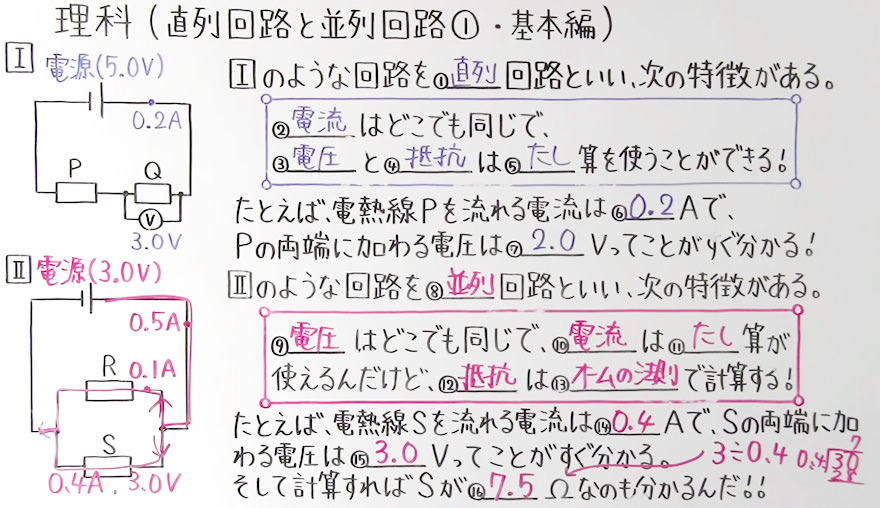 理科（直列回路と並列回路①・基本編）
Ⅰ 電源(5.0V)
0.2A
P
Q
V
3.0V
Ⅰのような回路を①直列回路といい、次の特徴がある。
②電流はどこでも同じで、
③電圧と④抵抗は⑤たし算を使うことができる！
たとえば、電熱線Pを流れる電流は⑥0.2Aで、
Pの両端に加わる電圧は⑦2.0Vってことがすぐ分かる！
Ⅱ 電源(3.0V)
0.5A
R 0.1A
S
0.4A、3.0V
Ⅱのような回路を⑧並列回路といい、次の特徴がある。
⑨電圧はどこでも同じで、⑩電流は⑪たし算が
使えるんだけど、⑫抵抗は⑬オームの法則で計算する！
たとえば、電熱線Sを流れる電流は⑭0.4Aで、Sの両端に加
わる電圧は⑮3.0Vってことがすぐ分かる。
そして計算すればSが⑯7.5Ωなのも分かるんだ!!
3÷0.4
7
0.4 30
28